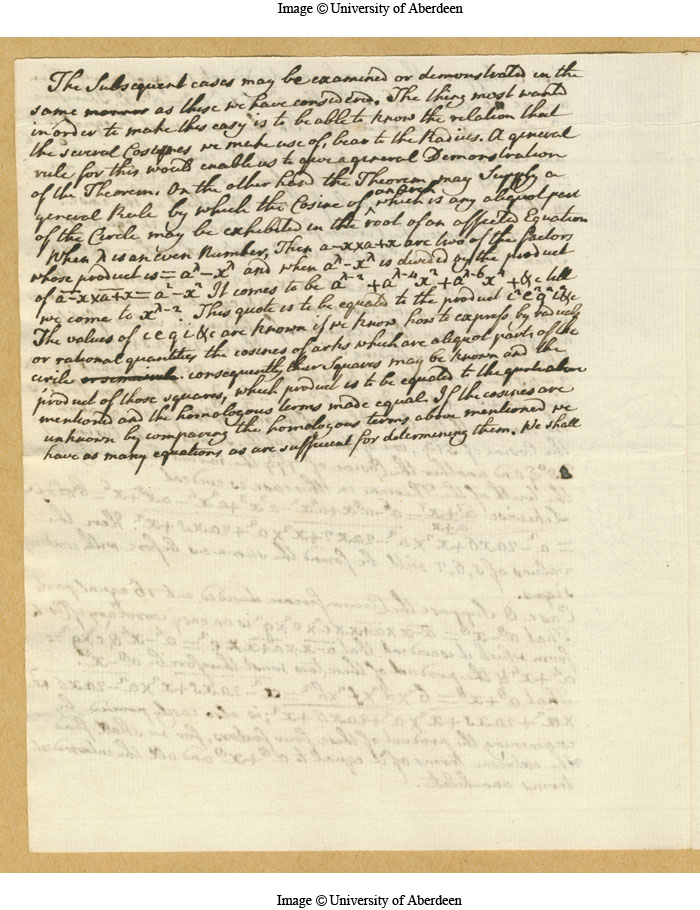 Image © University of Aberdeen
The Subsequent cases may be examined or demonstrated in the
same manner as these we have considered. The thing most wanted
in order to make this easy is to be able to know the relation that
the several Cosines we make use of, bear to the Radius. A general
rule for this would enable us to give a general Demonstration
of the Theorem. On the other hand the Theorem may Supply a
general Rule by which the Cosine of an arch which is any aliquot part
of the Circle may be exhibited in the root of an affected Equation
When λ is an even Number, Then a-x×a+x are two of the factors
whose product is = a^λ - x^λ and when a^λ - x^λ is divided by the product
of a-x×a+x = a² - x² It comes to be a^λ-2 + a^λ-4 x² + a^λ-6 x⁴ + &c till
we come to x^λ-2. This quote is to be equated to the product c² e² g² i² &c
The values of c e g i &c are known if we know how to express by radicals
or rational quantities the cosines of arks which are aliquot parts of the
circle consequently their Squares may be known and the
product of those squares, which product is to be equated to the quote above
mentioned and the homologous terms made equal. If the cosines are
unknown by comparing the homologous terms above mentioned we
have as many equations as are sufficient for determining them. We shall
Image © University of Aberdeen